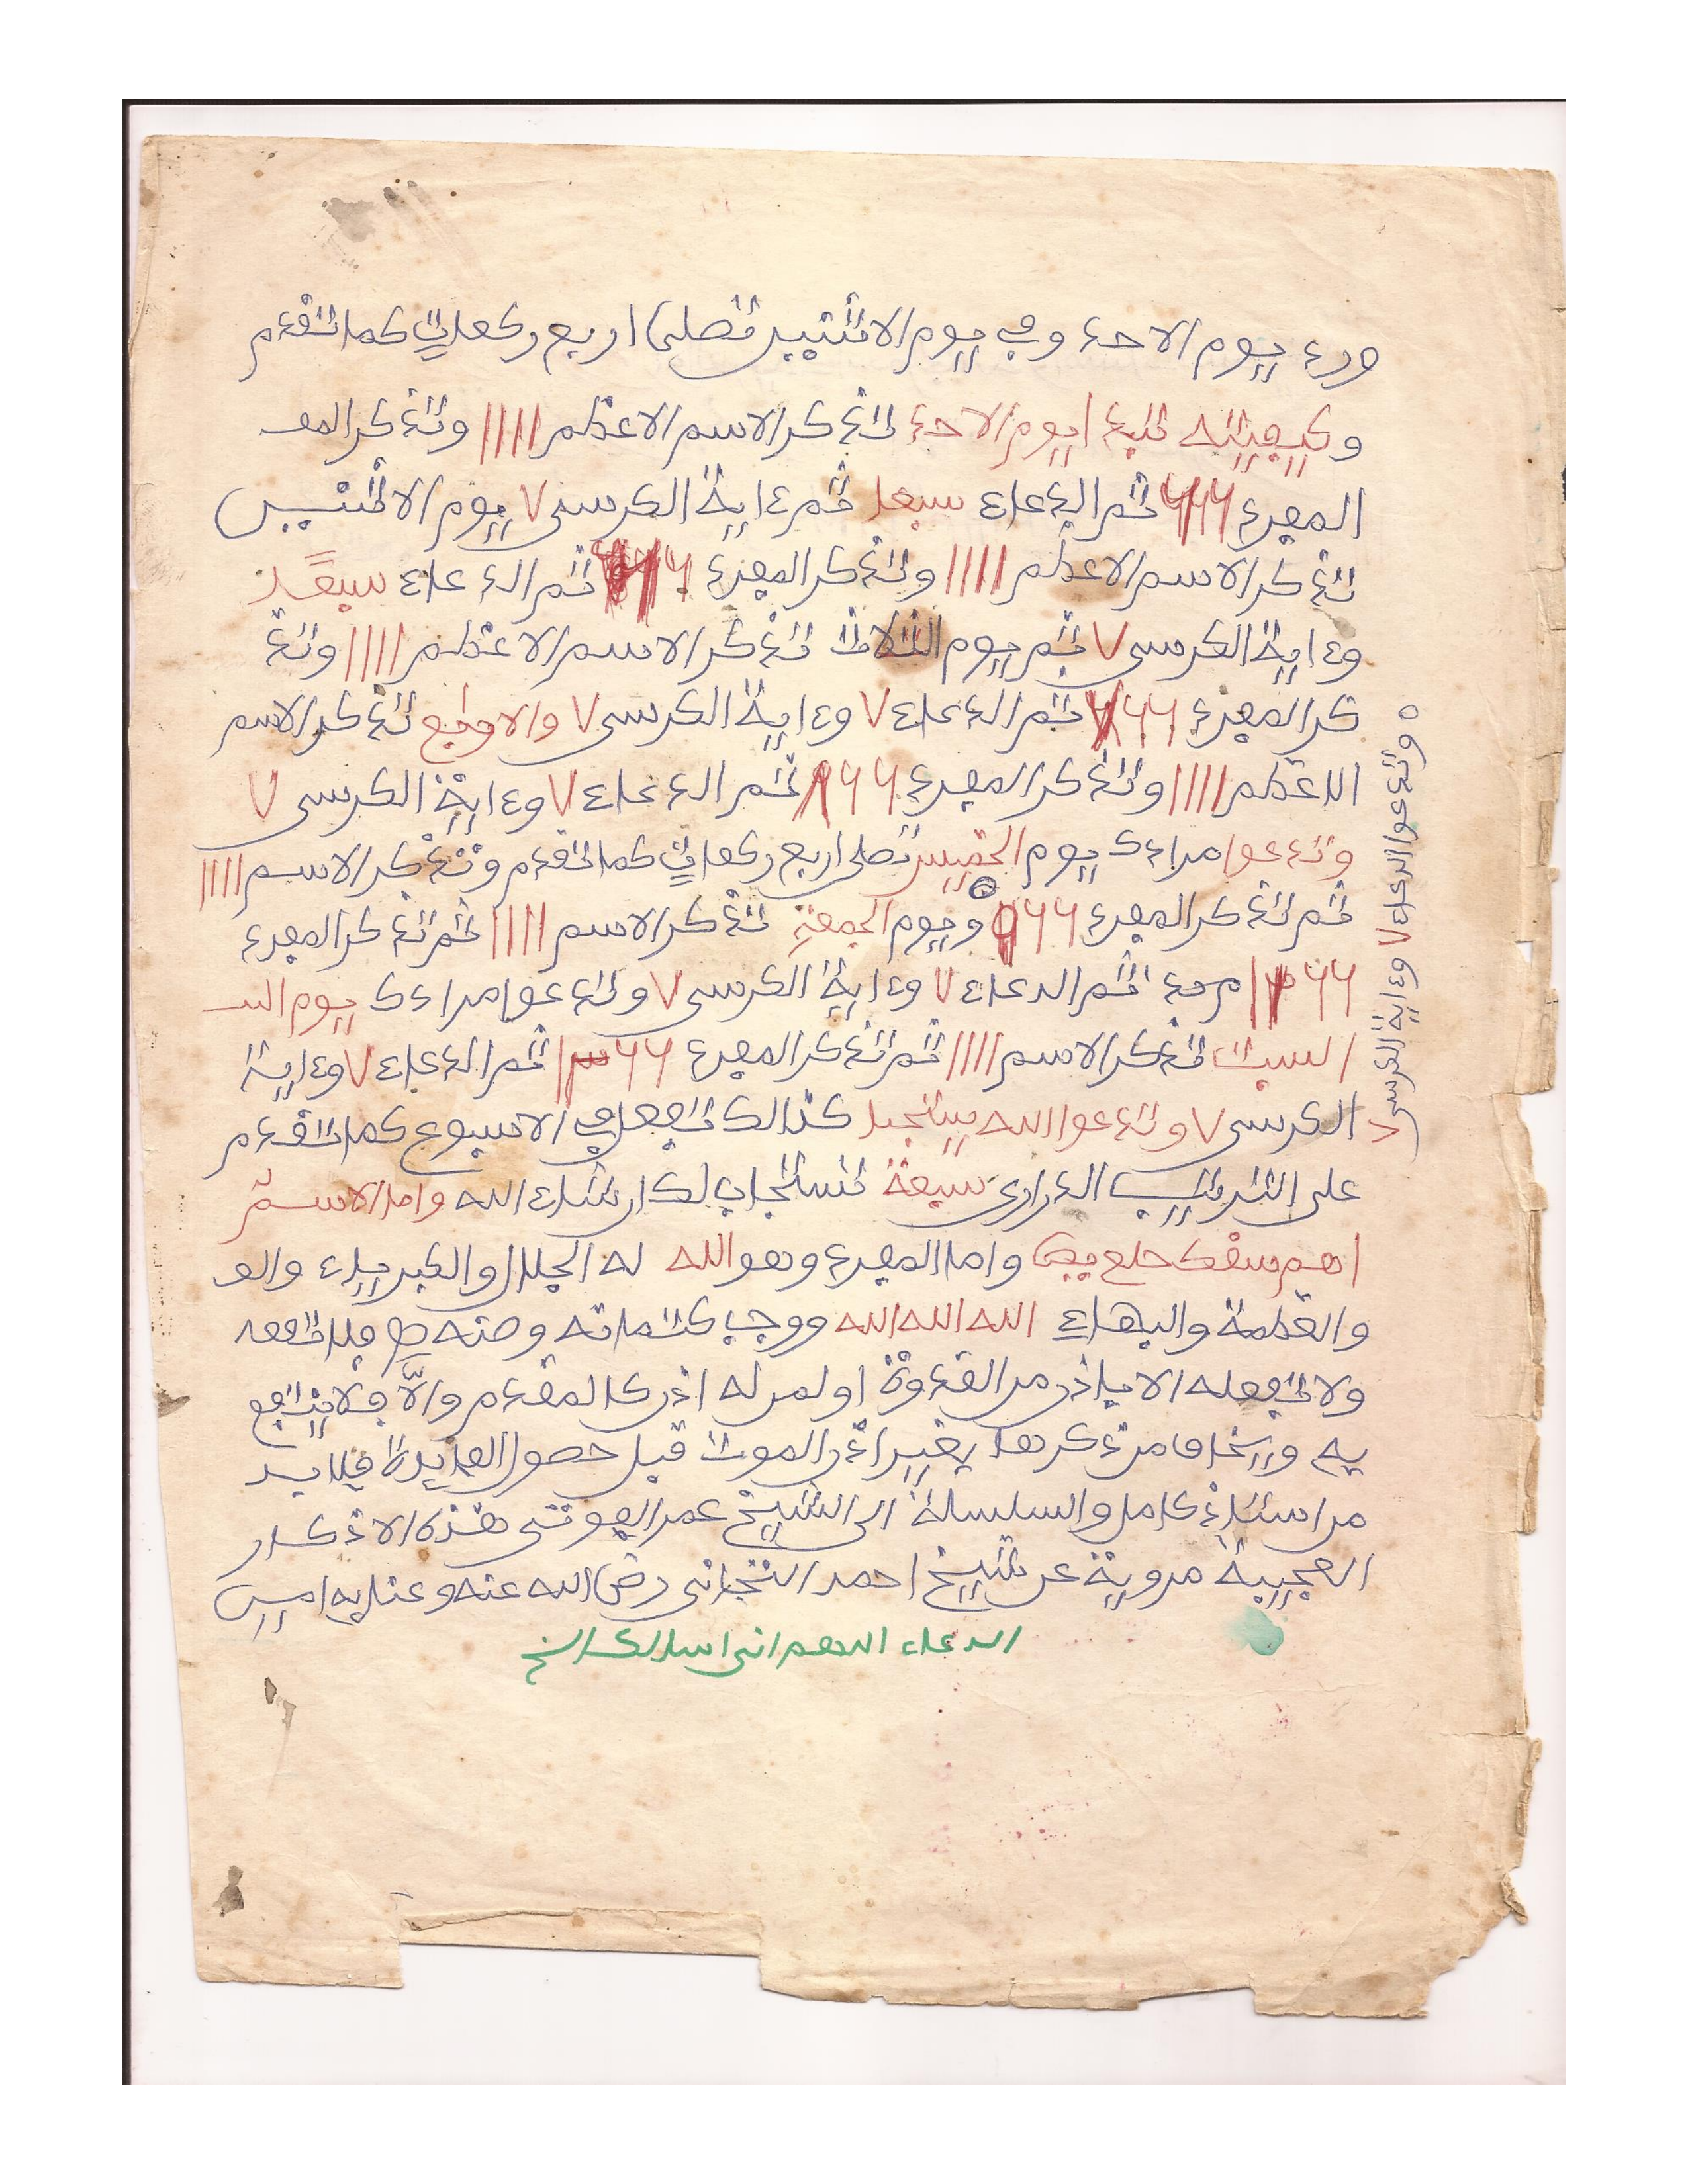 ورد يوم الاحد وفي يوم الاثنين تصلى اربع ركعات كما تقدم
وكيفيته تبدا يوم الاحد تذكر الاسم الاعظم 1111 وتذكر المفـ
المفرد 666 ثم الدعاء سبعا ثم ءاية الكرسى 7 يوم الاثنين
تذكر الاسم الاعظم 1111 وتذكر المفرد ثم الدعاء سبعًا
وءاية الكرسى 7 ثم يوم الثلاث تذكر الاسم الاعظم 1111 وتذ
كر المفرد 66 ثم الدعاء 7 وءاية الكرسى 7 والاربع تذكر الاسم
الاعظم 1111 وتذكر المفرد 66 ثم الدعاء 7 وءاية الكرسى 7
وتدعوا مرادك يوم الخميس تصلى اربع ركعات كما تقدم وتذكر الاسم 1111
ثم تذكر المفرد 66 ويوم الجمعة تذكر الاسم 1111 ثم تذكر المفرد
66 ثم الدعاء 7 وءاية الكرسى 7 وتدعوا مرادك يوم السـ
السبت تذكر الاسم 1111 ثم تذكر المفرد 66 ثم الدعاء 7 وءاية
الكرسى 7 وتدعوا الله كذالك تفعل في الاسبوع كما تقدم
على الترتيب الدرارى سبعة تستجاب لك ان شاء الله واما الاسم
اهم سقك حلع يص واما المفرد وهو الله له الجلال والكبرياء والعـ
والعظمة والبهاء الله الله الله ووجب كتمانه وصنه فلا تفعـ
ولا تفعله الا باذن من القدوة او لمن له اذن كالمقدم والّا فلا ينتفع
به ويخاف من ذكرها بغير اذن الموت قبل حصول الفايدة فلا بد
من استاذ كامل والسلسلة الى الشيخ عمر الفوتى هذه الاذكار
العجيبة مروية عن شيخ احمد التجانى رض الله عنه وعنا به امين
الدعاء اللهم انى اسالك الخ
وتدعوا الدعاء 7 وءاية الكرسى 7